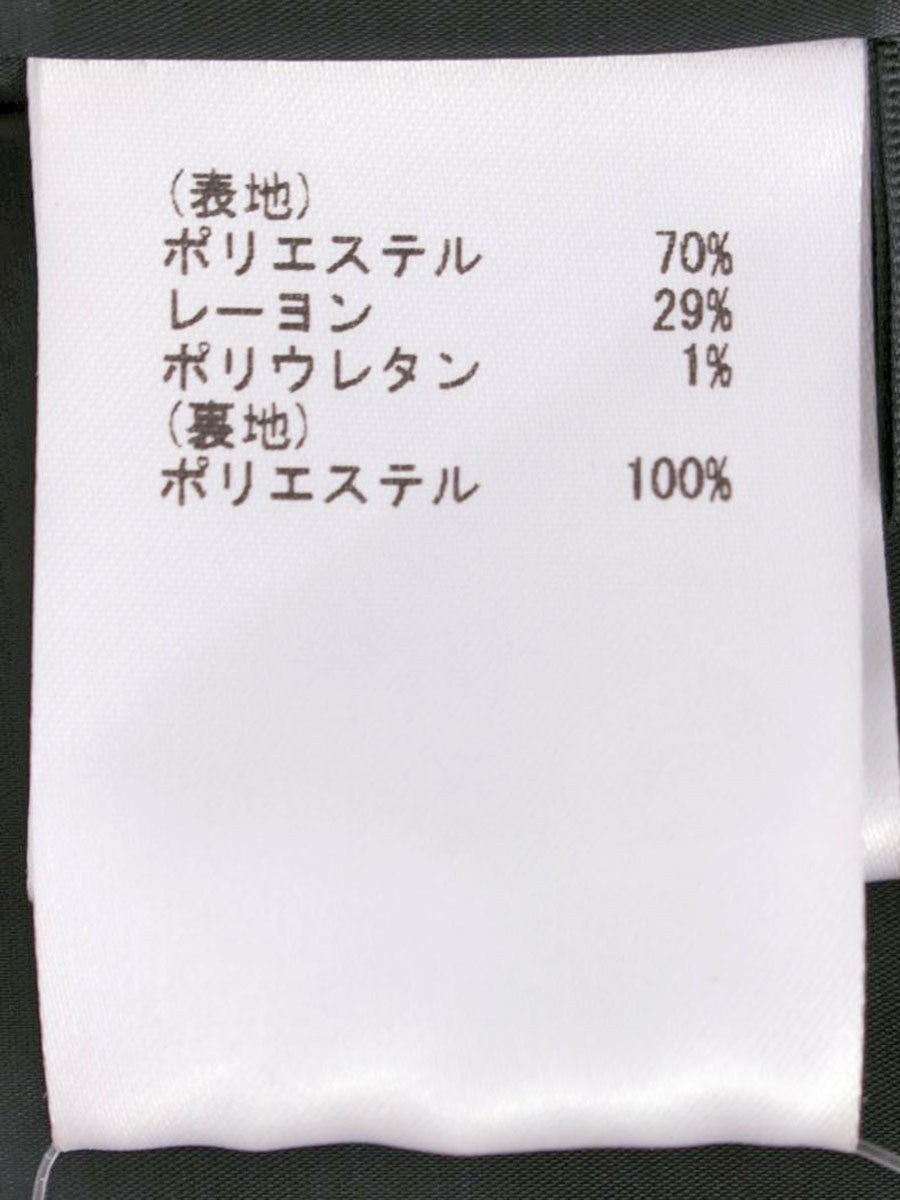 (表地)
ポリエステル 70%
レーヨン 29%
ポリウレタン 1%
(裏地)
ポリエステル 100%